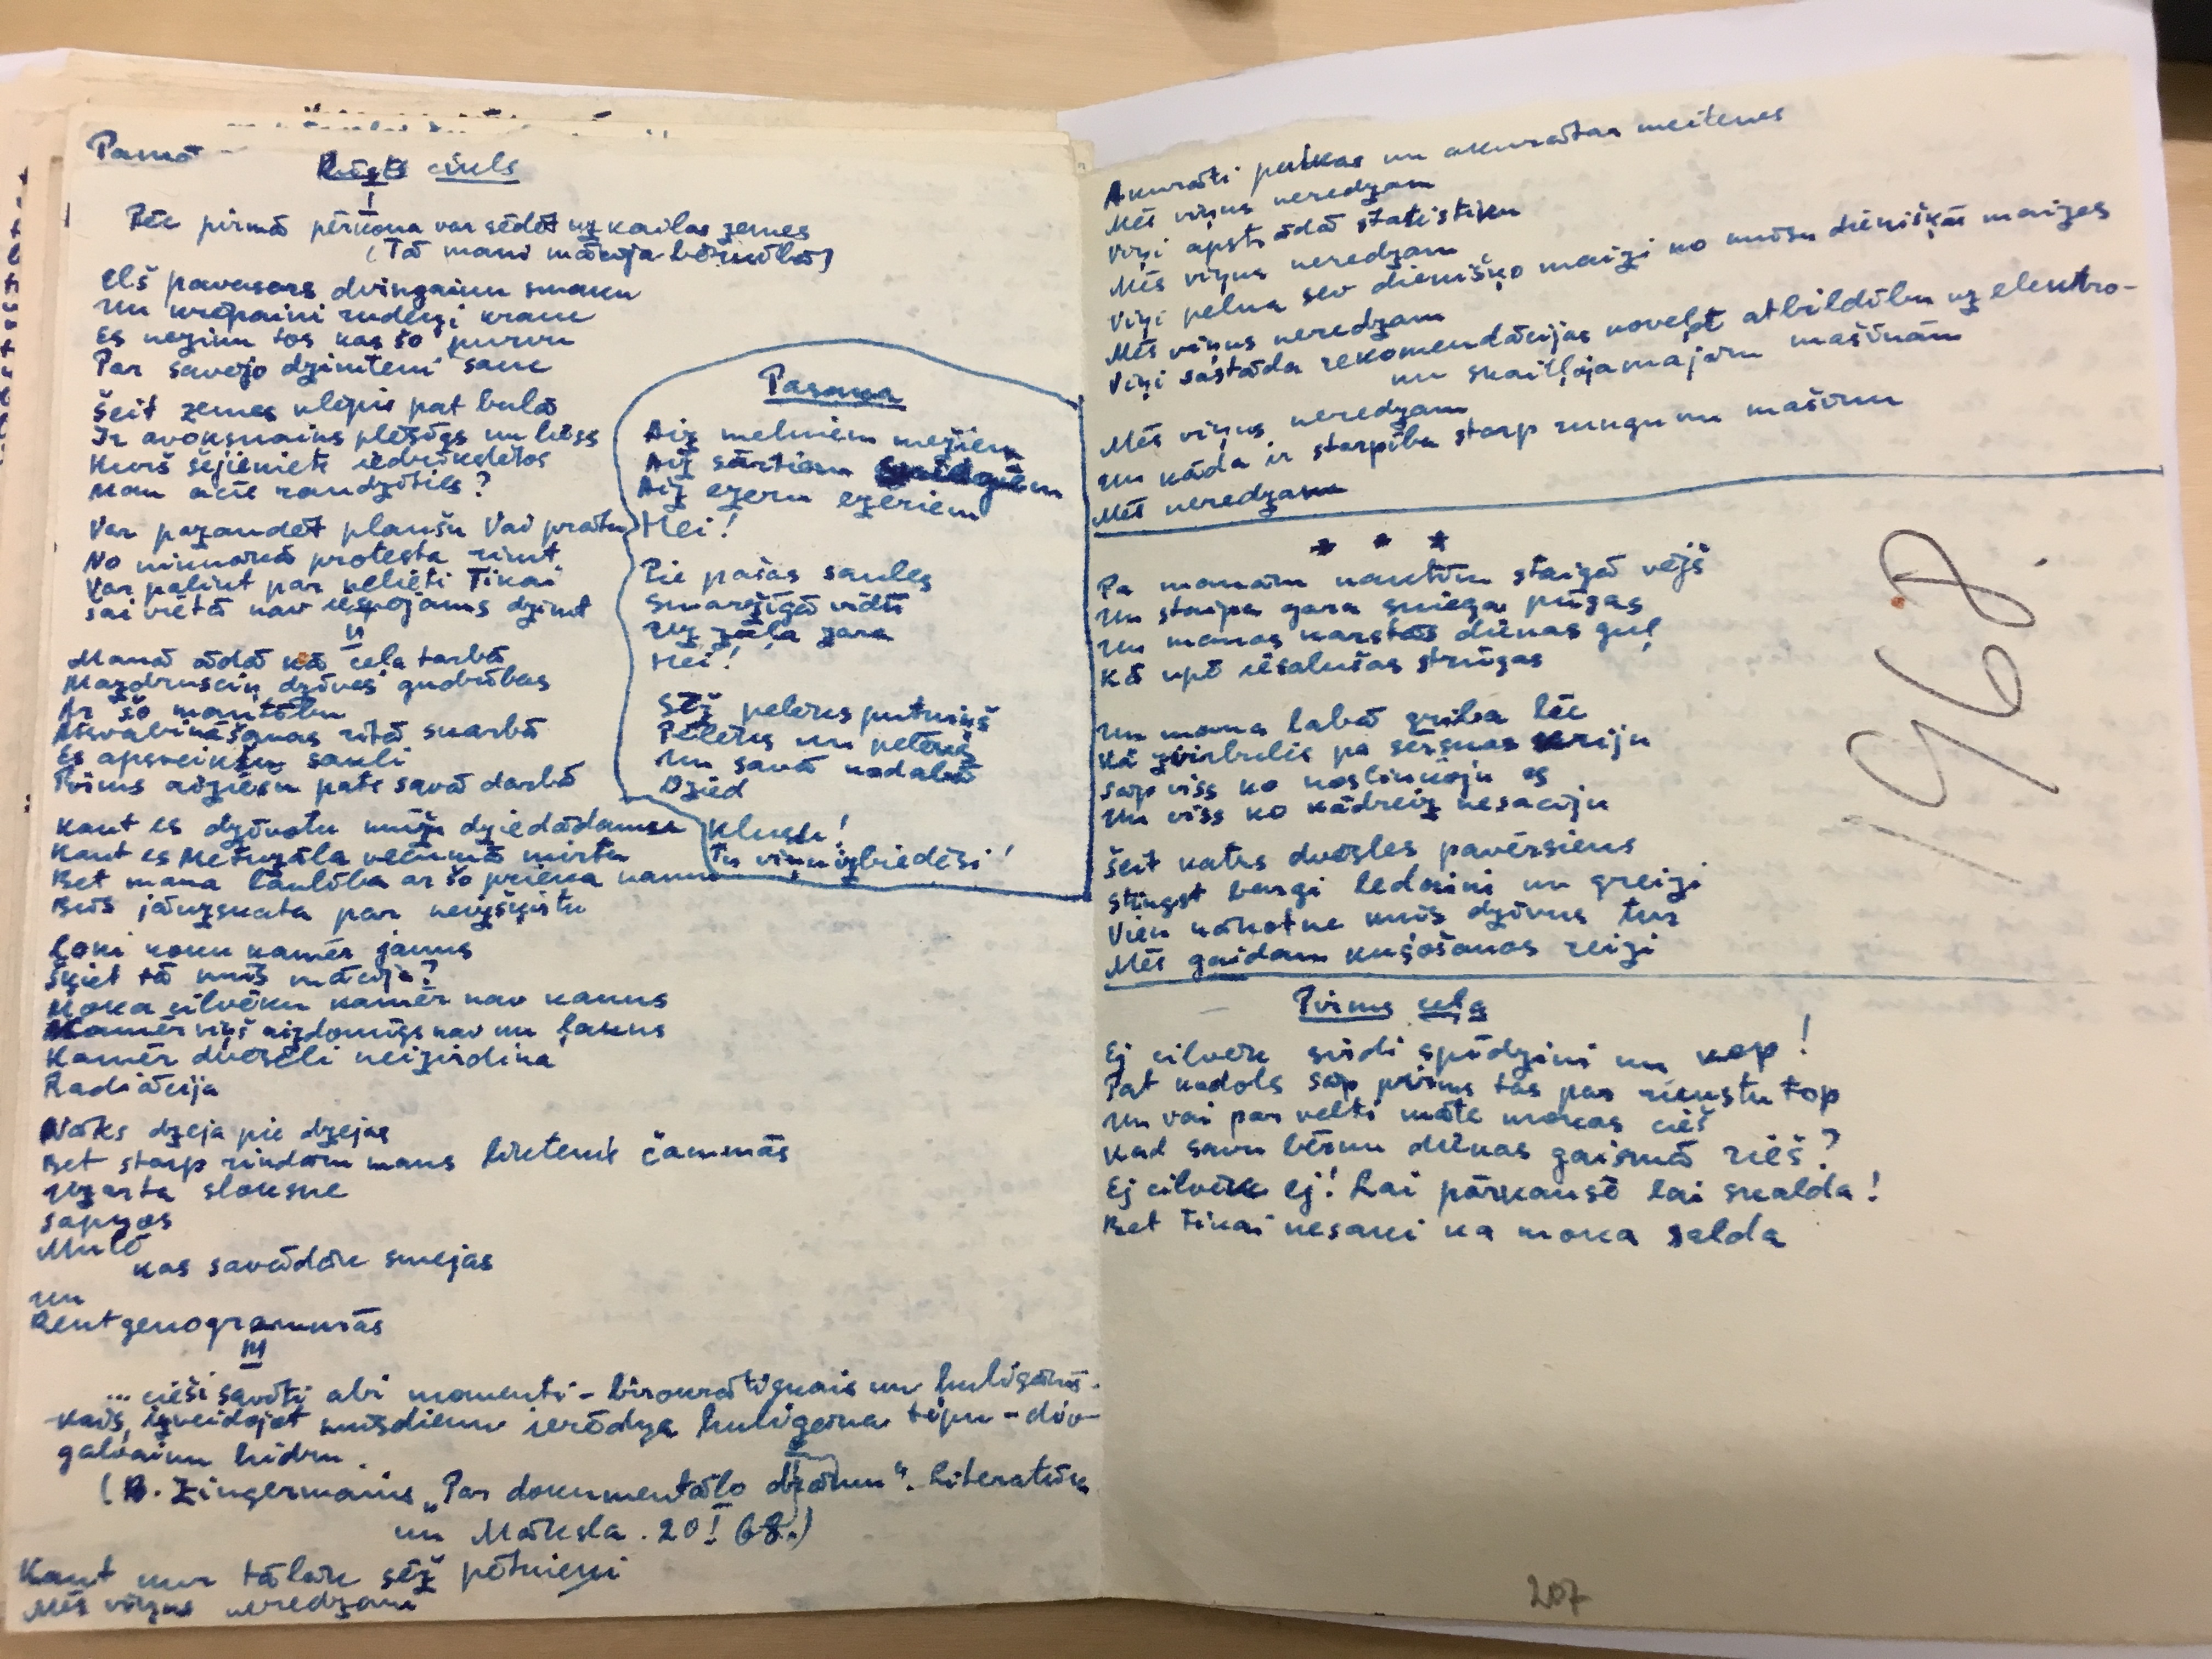 Pamā
Rūgts cikls
I
Pēc pirmā pērkona var sēdēt uz kailas zemes
(Tā mani mācīja bērnībā)
Elš pavasars dvingainu smaku
un krēpaini rudeņi krauc
Es nezinu tos kas šo purvu
Par savējo dzimteni sauc
Šeit zemes klēpis pat bulā
Ir avoksnains plēsīgs un liess
Kurš šejieniets iedrīkstētos
Man acīs raudzīties?
Var pazaudēt plaušu Vai prātu
No nimirā protesta rimt
Var palikt par ķelēti Tikai
šai vietā nav iespējams dzimt
II
Manā ādā kā ceļa tarbā
Mazdrusciņ dzīves gudrības
Ar šo mantību
Atsvabināšanas rītā skarbā
Es apsveikšu sauli
Pirms aiziešu pats savā darbā
Kaut es dzīvotu mūžu dziedādams
Kaut es Metuzāla vecumā mirtu
Bet mana laulība ar šo prieka kannu
Būs jāuzskata par neizšķirtu
Loki koku kamēr jauns
Šķiet tā mūs mācīja?
Moka cilvēku kamēr nav kauns
Kamēr viņš aizdomīgs nav un ļauns
Kamēr dvēseli neizirdina
Radiācija
Nāks dzeja pie dzejas
Bet starp rindām mans liktenis čammās
Uzarta sloksne
sapņos
Mutē
kas savādāk smejas
un
Rentgenogrammās
III
... cieši savīti abi momenti - birokrātiskais un huligānis-
kais, izveidojot mūsdienu ierēdņa huligāna tipu - div-
galvainu hidru.
(B. Zingermanis „Par dokumentālo dzānru“. Literatūra
un Māksla. 20 I 68.)
Kaut kur tālāk sēž pētnieki
Mēs viņus neredzam
Pasaka
Aiz melniem mežiem
Aiz sārtiem
Aiz ezeru ezeriem
Hei!
Pie pašas saules
Smaržīgā vidū
Uz zaļa zara
Hei!
Sēž pelēks putniņš
Pelēks un pelēks
Un savā nodabā
Dzied
Klusu!
Tu viņu izbiedēsi!
Akurāti puikas un akurātas meitenes
Mēs viņus neredzam
Viņi apstrādā statistiku
Mēs viņus neredzam
Viņi pelna sev dienišķo maizi no mūsu dienišķās maizes
Mēs viņus neredzam
Viņi sastāda rekomendācijas novelt atbildību uz elektro-
un skaitļojamajām mašīnām
Mēs viņus neredzam
Un kāda ir starpība starp rungu un mašīnu
Mēs neredzam
* * *
Pa manām naktīm staigā vējš
Un staipa gara sniega pūgas
Un manas karstās dienas guļ
Kā upē iesalušas strūgas
Un mana labā griba lēc
Kā zvirbulis pa sērsnas skriju
Sāp viss ko noslinkoju es
Un viss ko kādreiz nesacīju
Šeit katrs dvēsles pavērsiens
Stingst bargi ledaini un greizi
Vien nākotne mūs dzīvus tur
Mēs gaidam kuģošanas reizi
1968.
Pirms ceļa
Ej cilvēk sirdi spīdzini un kop!
Pat kodols sāp pirms tas par riekstu top
Un vai par velti māte mokas cieš
Kad savu bērnu dienas gaismā rieš?
Ej cilvēk ej! Lai pārkausē lai skalda!
Bet Tikai nesaki ka moka salda
207